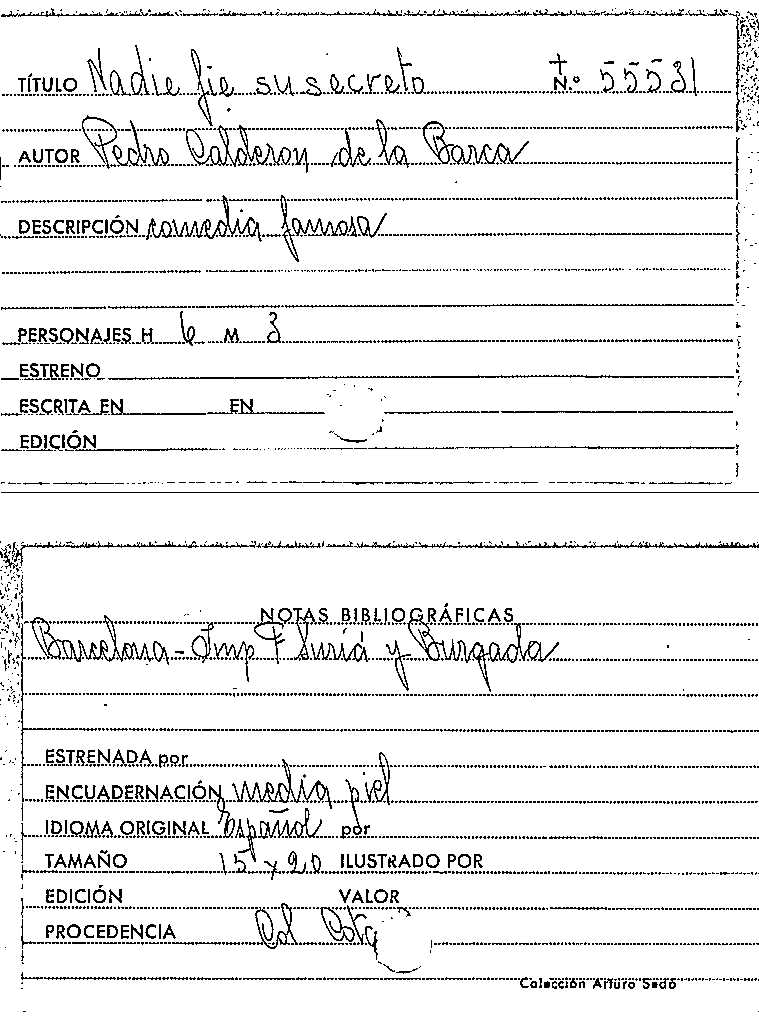 TÍTULO Nadie fie su secreto N.º 55531
AUTOR Pedro Calderon de la Barca
DESCRIPCIÓN comedia famosa
PERSONAJES H 6 M 3
ESTRENO
ESCRITA EN EN
EDICIÓN
NOTAS BIBLIOGRÁFICAS
Barcelona - Imp F Suriá y Burgada
ESTRENADA por
ENCUADERNACIÓN media piel
IDIOMA ORIGINAL Español por
TAMAÑO 15 x 20 ILUSTRADO POR
EDICIÓN VALOR
PROCEDENCIA Col Cota
Colección Arturo Sedó